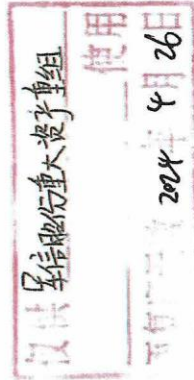 仅供军信股份重大资产重组
使用
2024年4月26日